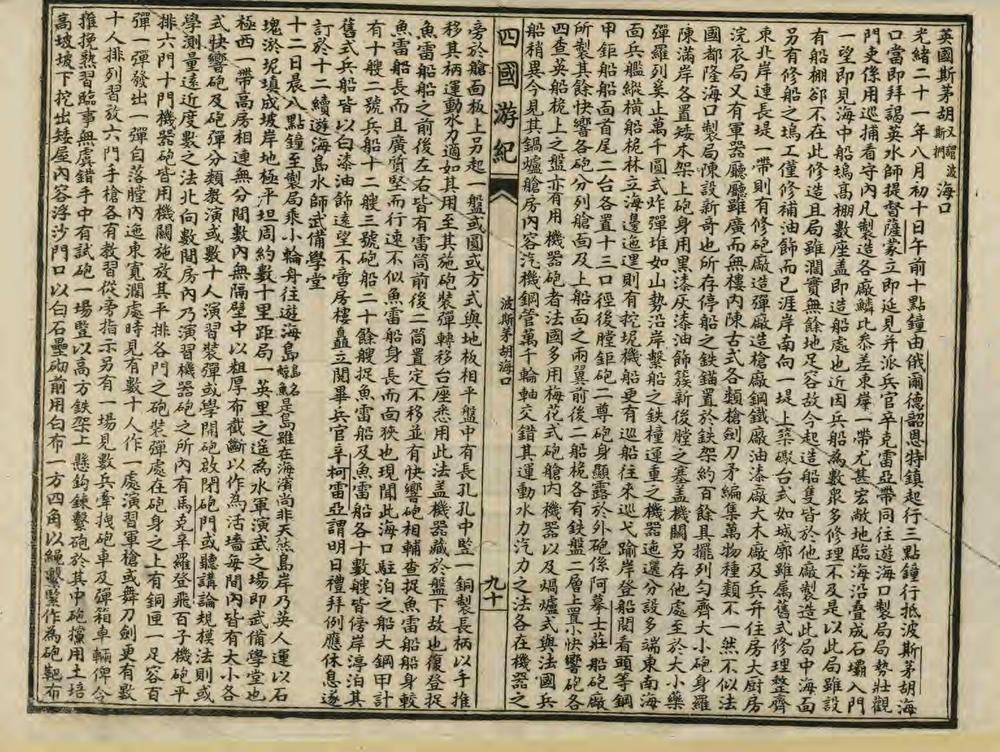 英國斯茅胡又謂波斯們海口
光緒二十一年八月初十日午前十點鐘由俄爾德韶恩特鎮起行三點鐘行抵波斯茅胡海
口當即拜謁英水師提督薩蒙立即延見并派兵官辛克雷亞帶同往遊海口製局局勢壯觀
門吏係用巡捕看守內凡製造各廠鱗比恭差東岸一帶尤甚宏敞地臨海沿疊成石壩入門
一望即見海中船塢高棚數座盖即造船處也近因兵船為數眾多修理不及是以此局雖設
有船棚卻不在此修造且局雖濶實無餘地足容故今起造船隻皆於他廠製造此局中海面
另有修船之塢工僅修補油飾而已涯岸南向一堤上築礮台式如城廓雖屬舊式修理整齊
東北岸連長堤一帶則有修砲廠造彈廠造槍廠鋼鐵廠油漆廠大木廠及兵弁住房大厨房
浣衣局又有軍器廳廳雖廣而無樓內陳古式各類槍劍刀矛編集萬物種類不一然不似法
國都隆海口製局陳設新奇也所存停船之鐵錨置於鐵架約百餘具擺列勻齊大小砲身羅
陳滿岸各置矮木架上砲身用黑漆灰漆油飾簇新後膛之塞盖機關另存他處至於大小藥
彈羅列奚止萬千圓式炸彈堆如山勢沿岸繫船之鐵橦運重之機器迤邐分設多端東南海
面兵艦縱橫船桅林立海邊迤運則有挖坭機船更有巡船往來巡弋踰岸登船閱看頭等鋼
甲鉅船船面首尾二台各置十三口徑後膛鉅砲二尊砲身顯露於外砲係阿摹士莊船砲廠
所製其餘快響各砲分列艙面及上船面之兩翼前後二船桅各有鉄盤二層上置小快響砲各
四查英船桅上之盤亦有用機器砲者法國多用梅花式砲艙內機器以及煱爐式與法國兵
船稍異今見其鍋爐艙房內容汽機鋼管萬千輪軸交錯其運動水力汽力之法各在機器之
四國游紀
波斯茅胡海口
九十
旁於艙面板上另起一盤或圓或方式與地板相平盤中有長孔孔中竪一銅製長柄以手推
移其柄運動水力適如其用至其施砲裝彈轉移台座悉用此法盖機器藏於盤下故也復登捉
魚雷船船之前後左右皆有雷筒前後二筒置定不移並有快響砲相輔查捉魚雷船船身較
魚雷船長而且廣質堅而行速不似魚雷船身長而面狹也現聞此海口駐泊之船大鋼甲計
有十艘二號兵船十二艘三號砲船二十餘艘捉魚雷船及魚雷船各十數艘皆傍岸渟泊其
舊式兵船皆以白漆油飾遠望不啻房樓矗立閱畢兵官辛柯雷亞謂明日禮拜例應休息遂
訂於十二續遊海島水師武備學堂
十二日晨八點鐘至製局乘小輪舟往遊海島島名鯨魚是島雖在海濱尚非天然島岸乃英人運以石
塊淤坭填成坡岸地極平坦周約數十里距局一英里之遥為水軍演武之場即武備學堂也
極西一帶高房相連無分間數內無隔壁中以粗厚布截斷以作為活墻每間內皆有大小各
式快響砲及砲彈分類教演或數十人演習裝彈或學開砲啟閉砲門或聽講論規模法則或
學測量遠近度數之法北向數間房內乃演習機器砲之所內有馬克辛羅登飛百子機砲平
排六門十門機器砲皆用機關施放其平排各門之砲裝彈處在砲身之上有銅匣一足容百
彈一彈發出一彈自落膛內迤東寬濶處時見有數十人作一處演習軍槍或舞刀劍更有數
十人排列習放六門手槍各有教習從旁指示另有一場見數兵牽拽砲車及彈箱車輛俾令
推挽熟習臨事無虞錯手中有試砲一場竪以高方鉄架上懸鈎鍊繫砲於其中砲擋用土培
高坡坡下挖出矮屋內容浮沙門口以白石壘砌前用白布一方四角以繩繫緊作為砲靶布